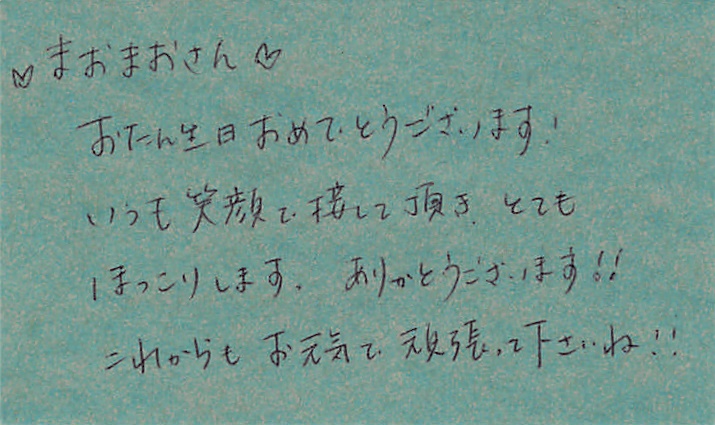 ♡まおまおさん♡
おたん生日おめでとうございます!
いつも笑顔で接して頂き、とても
ほっこりします。ありがとうございます!!
これからもお元気で頑張って下さいね!!